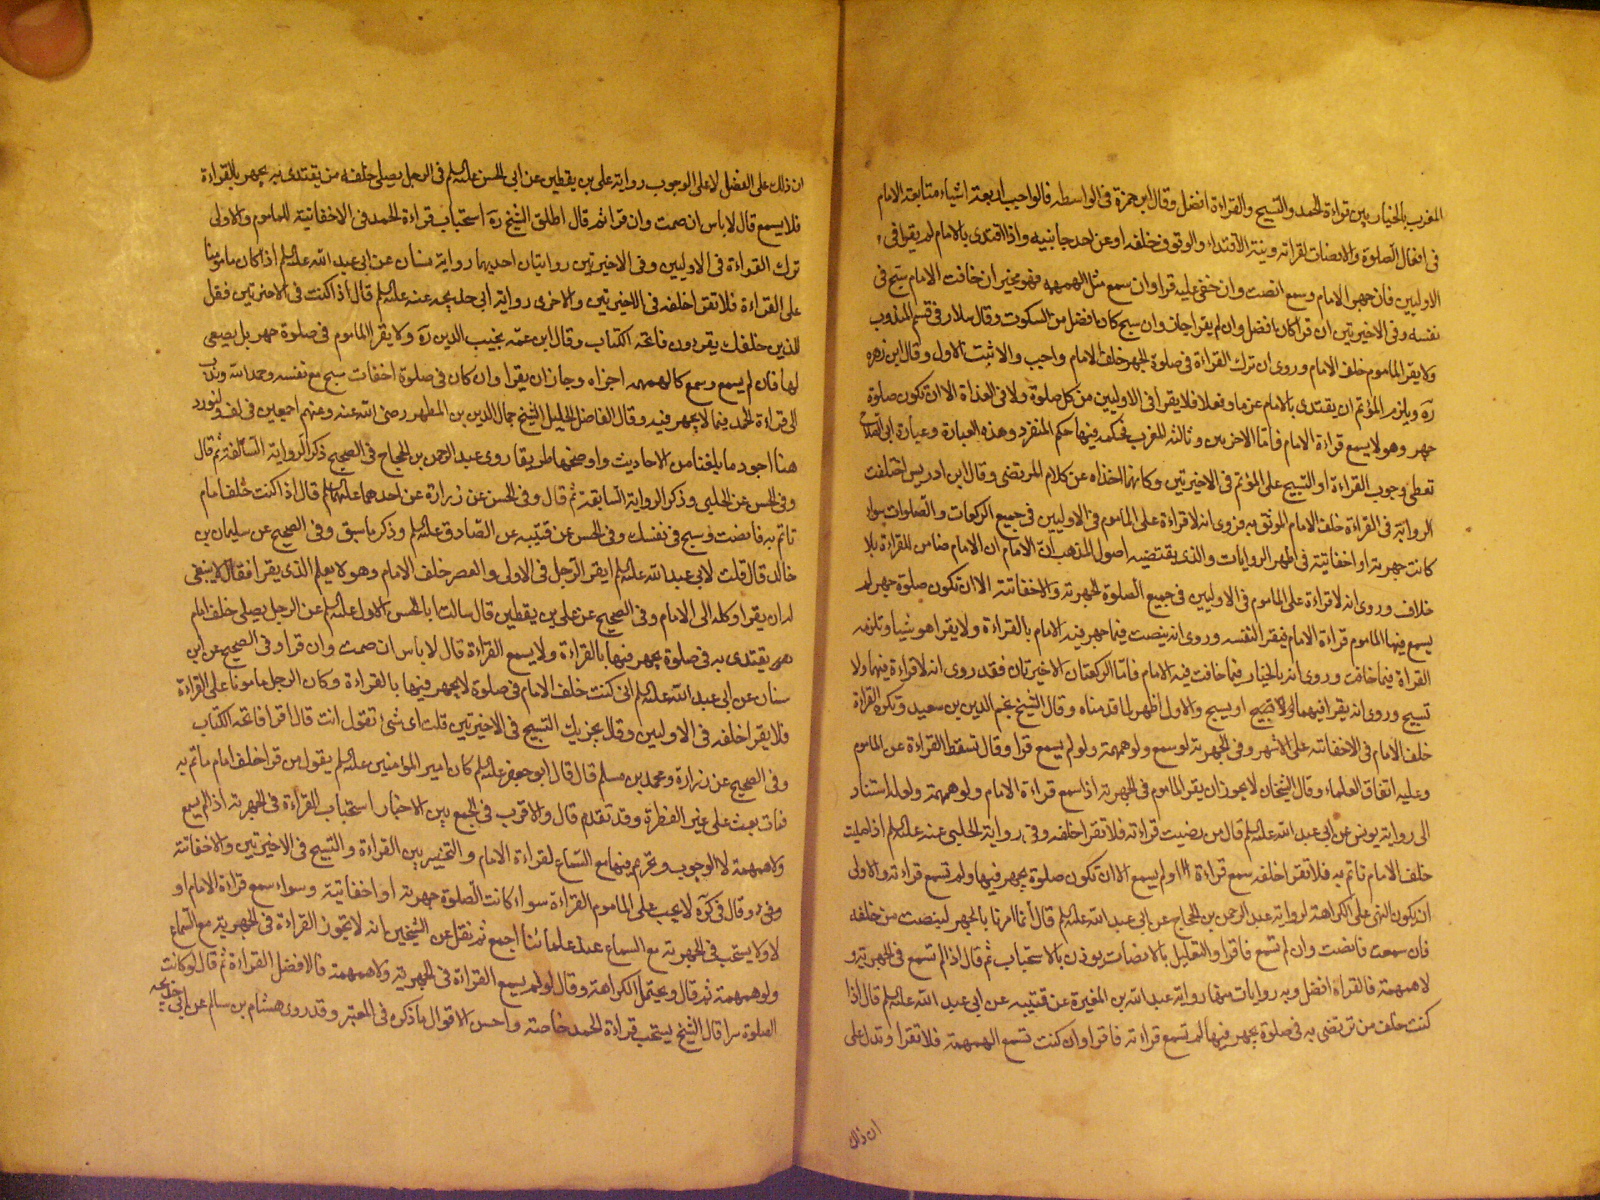 المغرب بالخيار بين قراءة الحمد والتسبيح والقراءة افضل وقال ابن حمزة في الواسطه فالواجب اربعة اشياء متابعة الامام
في افعال الصلوة والانصات لقراته ونية الاقتداء والوقوف خلفه او عن احد جانبيه واذا اقتدى بالامام لم يقرا في
الاوليين فان جهر الامام وسمع انصت وان خفي عليه قرا وان سمع مثل الهمهمه فهو مخير ان خافت الامام سبح في
نفسه وفي الاخيرتين ان قرا كان افضل وان لم يقرا جاز وان سبح كان افضل من السكوت وقال سلار في قسم المندوب
ولا يقرا الماموم خلف الامام وروى ان ترك القراءة في صلوة الجهر خلف الامام واجب والاثبت الاول وقال ابن زهره
ره ويلزم المؤتم ان يقتدى بالامام عزما وفعلا فلا يقرا في الاوليين من كل صلوة ولا في الغداة الا ان تكون صلوة
جهر وهو لا يسمع قراءة الامام فاما الاخرىين وثالثه المغرب فحكمه فيها حكم المنفرد وهذه العبارة وعبارة ابي الصلاح
تعطى وجوب القراءة او التسبيح على المؤتم في الاخيرتين وكانهما اخذاه عن كلام المرتضى وقال ابن ادريس اختلفت
الرواية في القراءة خلف الامام الموثق به فروى انه لا قراءة على الماموم في الاوليين في جميع الركعات والصلوات سواء
كانت جهرية او اخفاتية في اظهر الروايات والذى يقتضيه اصول المذهب ان الامام ضامن للقراءة بلا
خلاف وروى انه لا قراءة على الماموم في الاوليين في جميع الصلوة الجهرية والاخفاتية الا ان تكون صلوة جهر لم
يسمع فيها الماموم قراءة الامام فيقرا لنفسه وروى انه ينصت فيما جهر فيه الامام بالقراءة ولا يقرا هو شيا وتلزمه
القراة فيما خافت وروى انه بالخيار فيما خافت فيه الامام فاما الركعتان الاخيرتان فقد روى انه لا قراءة فيهما ولا
تسبيح وروى انه يقرا فيهما او يسبح والاول اظهر لما قدمناه وقال الشيخ نجم الدين بن سعيد وتكره القراة
خلف الامام في الاخفاتيه على الاشهر وفي الجهرية لو سمع ولو همهمة ولو لم يسمع قرا وقال تسقط القراءة عن الماموم
وعليه اتفاق العلماء وقال الشيخان لا يجوز ان يقرا الماموم في الجهرية اذا سمع قراءة الامام ولو همهمة ولعله استناد
الى رواية يونس عن ابى عبد الله عليه السلم قال من رضيت قراءته فلا تقرا خلفه وفي رواية الحلبي عنه عليه السلم اذا صليت
خلف الامام تاتم به فلا تقرا خلفه سمع قراءة ام لم يسمع الا ان تكون صلوة يجهر فيها ولم تسمع قراءته والاولى
ان يكون النهي على الكراهة لرواية عبد الرحمن بن الحجاج عن ابي عبد الله عليه السلم قال انما امرنا بالجهر لينصت من خلفه
فان سمعت فانصت وان لم تسمع فاقرا والتعليل بالانصات يوذن بالاستحباب ثم قال اذا لم تسمع في الجهرية و
لا همهمة فالقراءة افضل وبه روايات منها رواية عبد الله بن المغيرة عن قتيبه عن ابي عبد الله عليه السلم قال اذا
كنت خلف من ترتضى به في صلوة يجهر فيها لم تسمع قراءته فاقرا وان كنت تسمع الهمهمة فلا تقرا وتدل على
ان ذلك
ان ذلك على الفضل لا على الوجوب رواية على بن يقطين عن ابى الحسن عليه السلم في الرجل يصلى خلفه من يقتدى به يجهر بالقراءة
فلا يسمع قال لا باس ان صمت وان قرا ثم قال اطلق الشيخ ره استحباب قراءة الحمد في الاخفاتية للماموم والاولى
ترك القراءة في الاوليين وفي الاخيرتين روايتان احديهما رواية سنان عن ابى عبد الله عليه السلم اذا كان مامونا
على القراءة فلا تقرا خلفه في الاخيرتين والاخرى رواية ابى خديجه عنه عليه السلم قال اذا كنت في الاخيرتين فقل
للذين خلفك يقرءون فاتحة الكتاب وقال ابن عمه نجيب الدين ره ولا يقرا الماموم في صلوة جهر بل يصغى
لها فان لم يسمع وسمع كالهمهمه اجزاه وجاز ان يقرا وان كان في صلوة اخفات سبح مع نفسه وحمد الله وندب
الى قراءة الحمد فيما لا يجهر فيه وقال الفاضل الجليل الشيخ جمال الدين بن المطهر رضى الله عنه وعنهم اجمعين في لف ولنورد
هنا اجود ما بلغنا من الاحاديث واوضحها طريقا روى عبد الرحمن بن الحجاج في الصحيح ذكر الرواية السالفة ثم قال
وفي الحسن عن الحلبي وذكر الرواية السابقة ثم قال وفي الحسن عن زرارة عن احدهما عليهما السلم قال اذا كنت خلف امام
تاتم به فانصت وسبح في نفسك وفي الحسن عن قتيبه عن الصادق عليه السلم وذكر ما سبق وفي الصحيح عن سليمان بن
خالد قال قلت لابي عبد الله عليه السلم ايقرا الرجل في الاولى والعصر خلف الامام وهو لا يعلم الذى يقرا فقال لا ينبغى
له ان يقرا وكله الى الامام وفي الصحيح عن على بن يقطين قال سالت ابا الحسن الاول عليه السلم عن الرجل يصلى خلف امام
يقتدى به في صلوة يجهر فيها بالقراءة ولا يسمع القراءة قال لا باس ان صمت وان قرا وفي الصحيح عن ابن
سنان عن ابى عبد الله عليه السلم اذا كنت خلف الامام في صلوة لا يجهر فيها بالقراءة وكان الرجل مامونا على القراءة
فلا يقرا خلفه في الاوليين وقال يجزيك التسبيح في الاخيرتين قلت اى شئ تقول انت قال اقرا فاتحة الكتاب
وفي الصحيح عن زرارة ومحمد بن مسلم قال قال ابو جعفر عليه السلم كان امير المؤمنين عليه السلم يقول من قرا خلف امام ياتم به
فمات بعث على غير الفطرة وقد تقدم قال والاقرب في الجمع بين الاخبار استحباب القراءة في الجهرية اذا لم يسمع
ولا همهمة لا الوجوب وتحريم فيها مع السماع لقراءة الامام والتخيير بين القراءة والتسبيح في الاخيرتين والاخفاتة
وقال في كره لا يجب على الماموم القراءة سواء كانت الصلوة جهرية او اخفاتية وسواء سمع قراءة الامام او
لا ولا يستحب في الجهرية مع السماع عند علمائنا اجمع ثم نقل عن الشيخين انه لا يجوز القراءة في الجهرية مع السماع
ولو همهمة ثم قال ويحتمل الكراهة وقال لو لم يسمع القراءة في الجهرية ولا همهمة فالافضل القراءة ثم قال لو كانت
الصلوة سرا قال الشيخ يستحب قراءة الحمد خاصة واحسن الاقوال ما ذكره في المعتبر وقد روى هشام بن سالم عن ابى خديجه